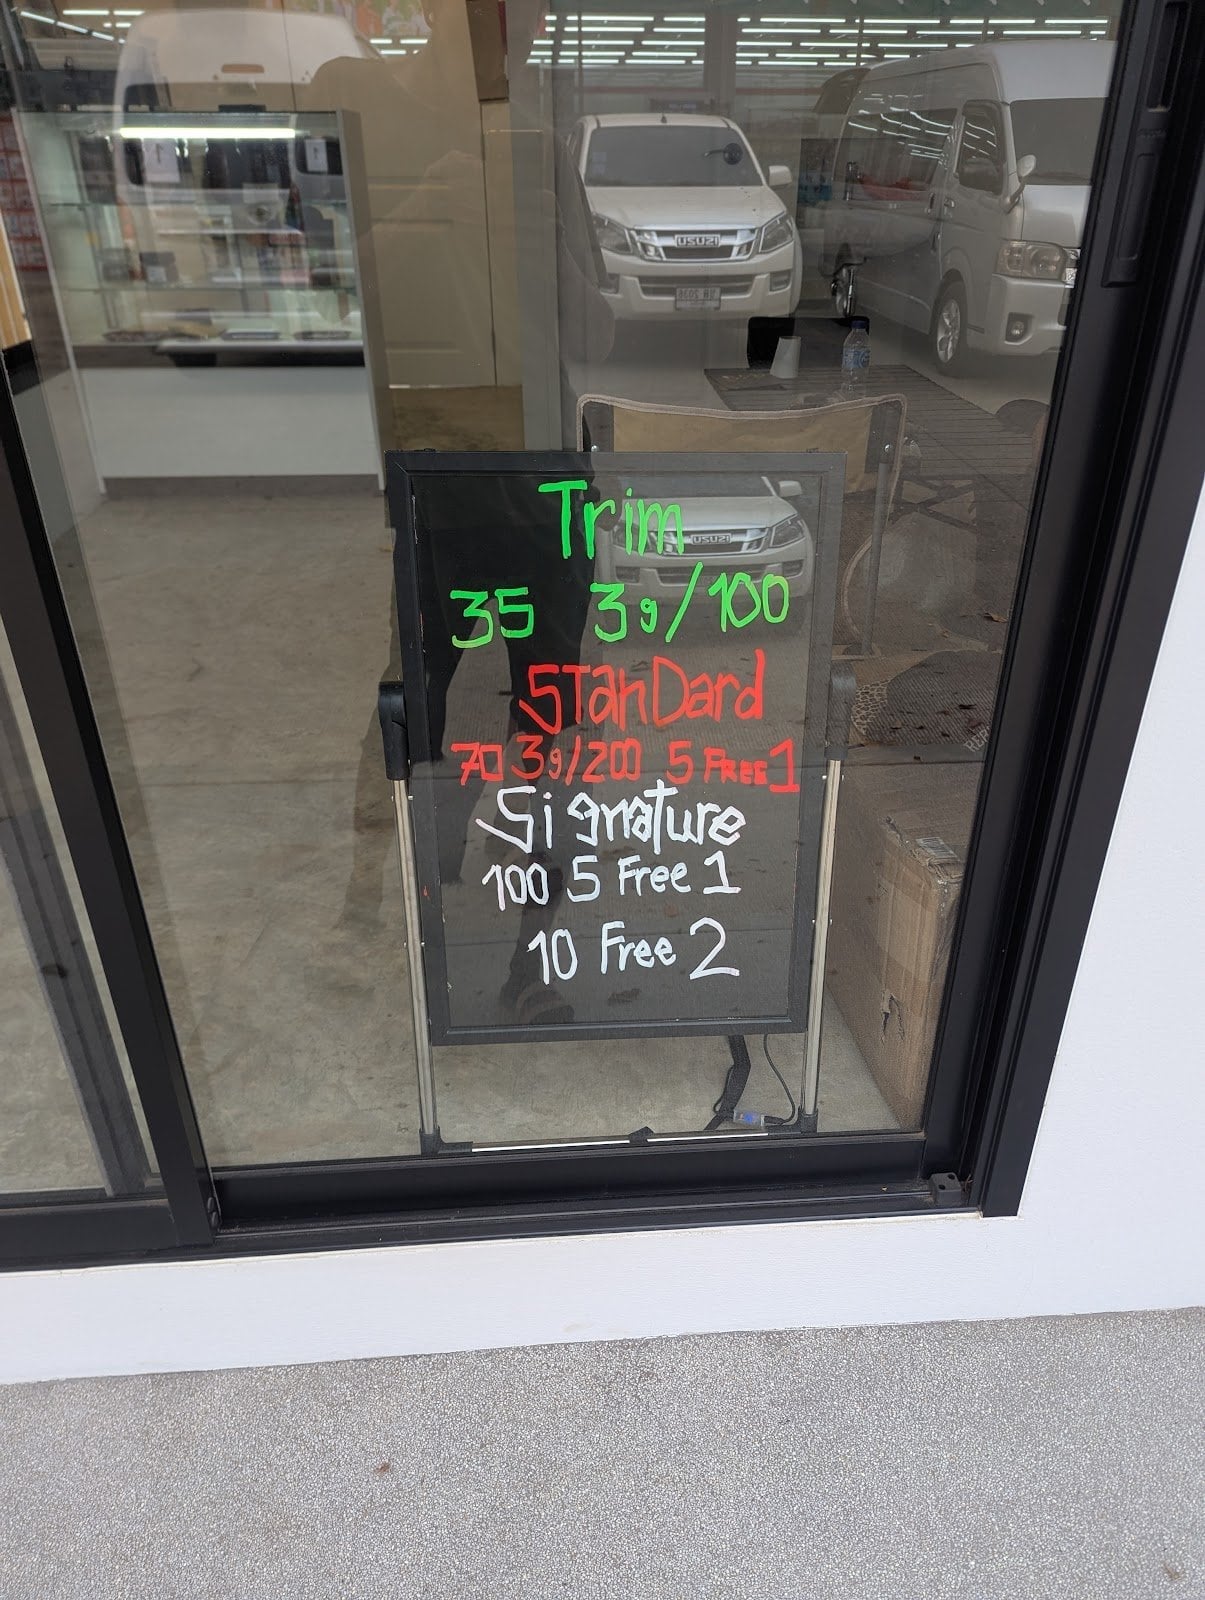 Trim
35 3g/100
STanDard
70 3g/200 5 FREE 1
Signature
100 5 Free 1
10 Free 2
ISUZU
ISUZU